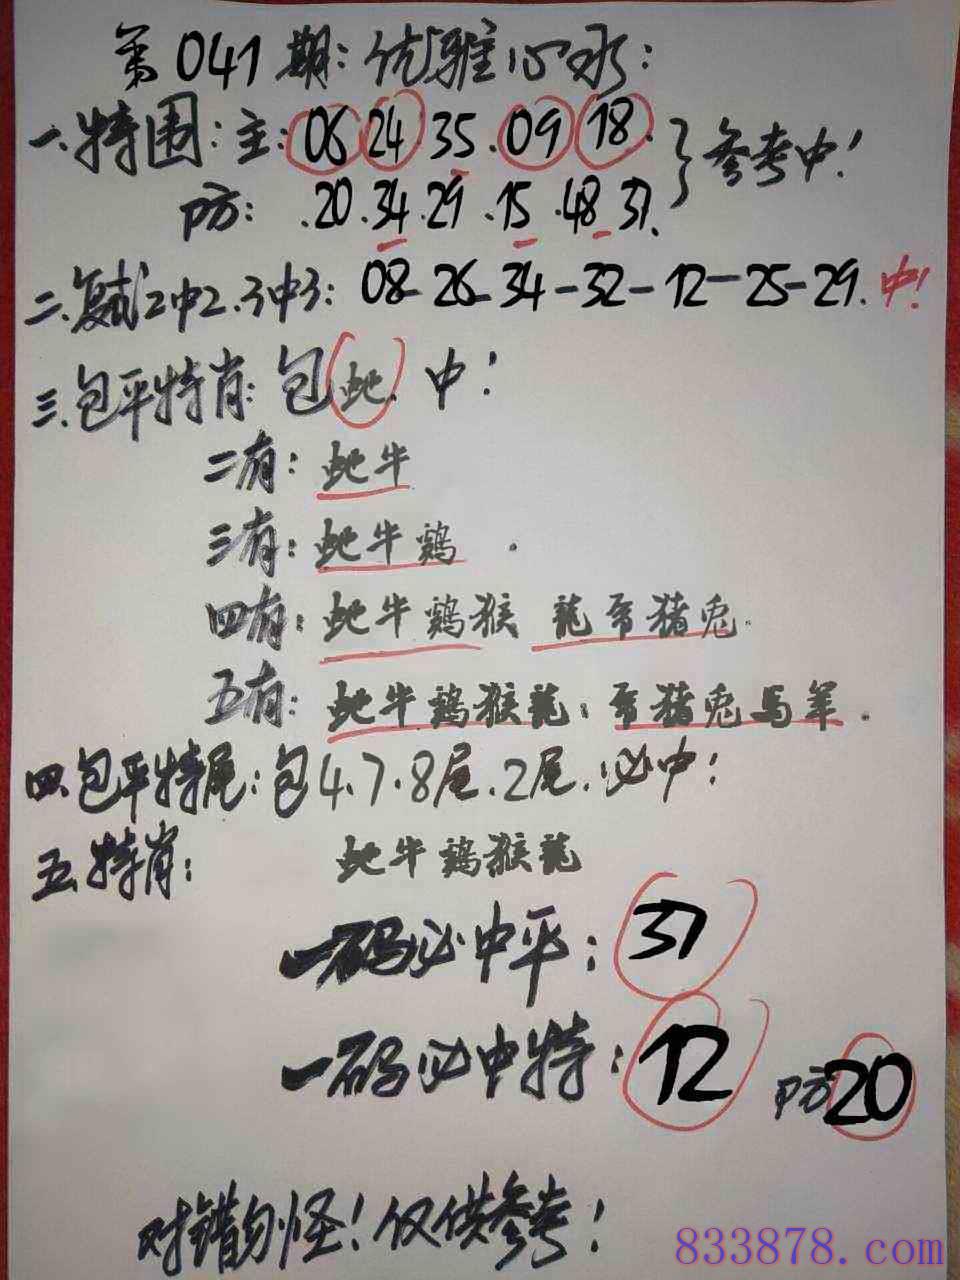 第041期:优雅心水:
一.特围:主:06 24.35.09 18.}参考中!
防:.20.34.29.15.48 37.
二.复试2中2.3中3:08-26-34-32-12-25-29.中!
三.包平特肖:包蛇.中!
二有:蛇牛
三有:蛇牛鸡.
四有:蛇牛鸡猴 龍 猪兔.
五有:蛇牛鸡猴龍: 猪兔馬羊.
四.包平特尾:包4.7.8尾.2尾.必中!
五.特肖:蛇牛鸡猴龍
一码必中平:37
一码必中特:12 防20
对错勿怪!仅供参考!
833878.com